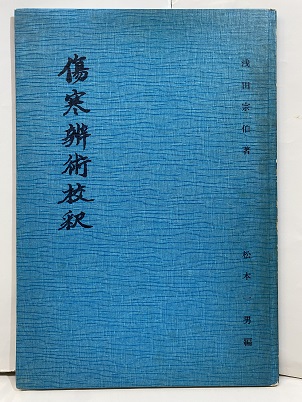 浅田宗伯著
松本勇編
傷寒辨術校釈